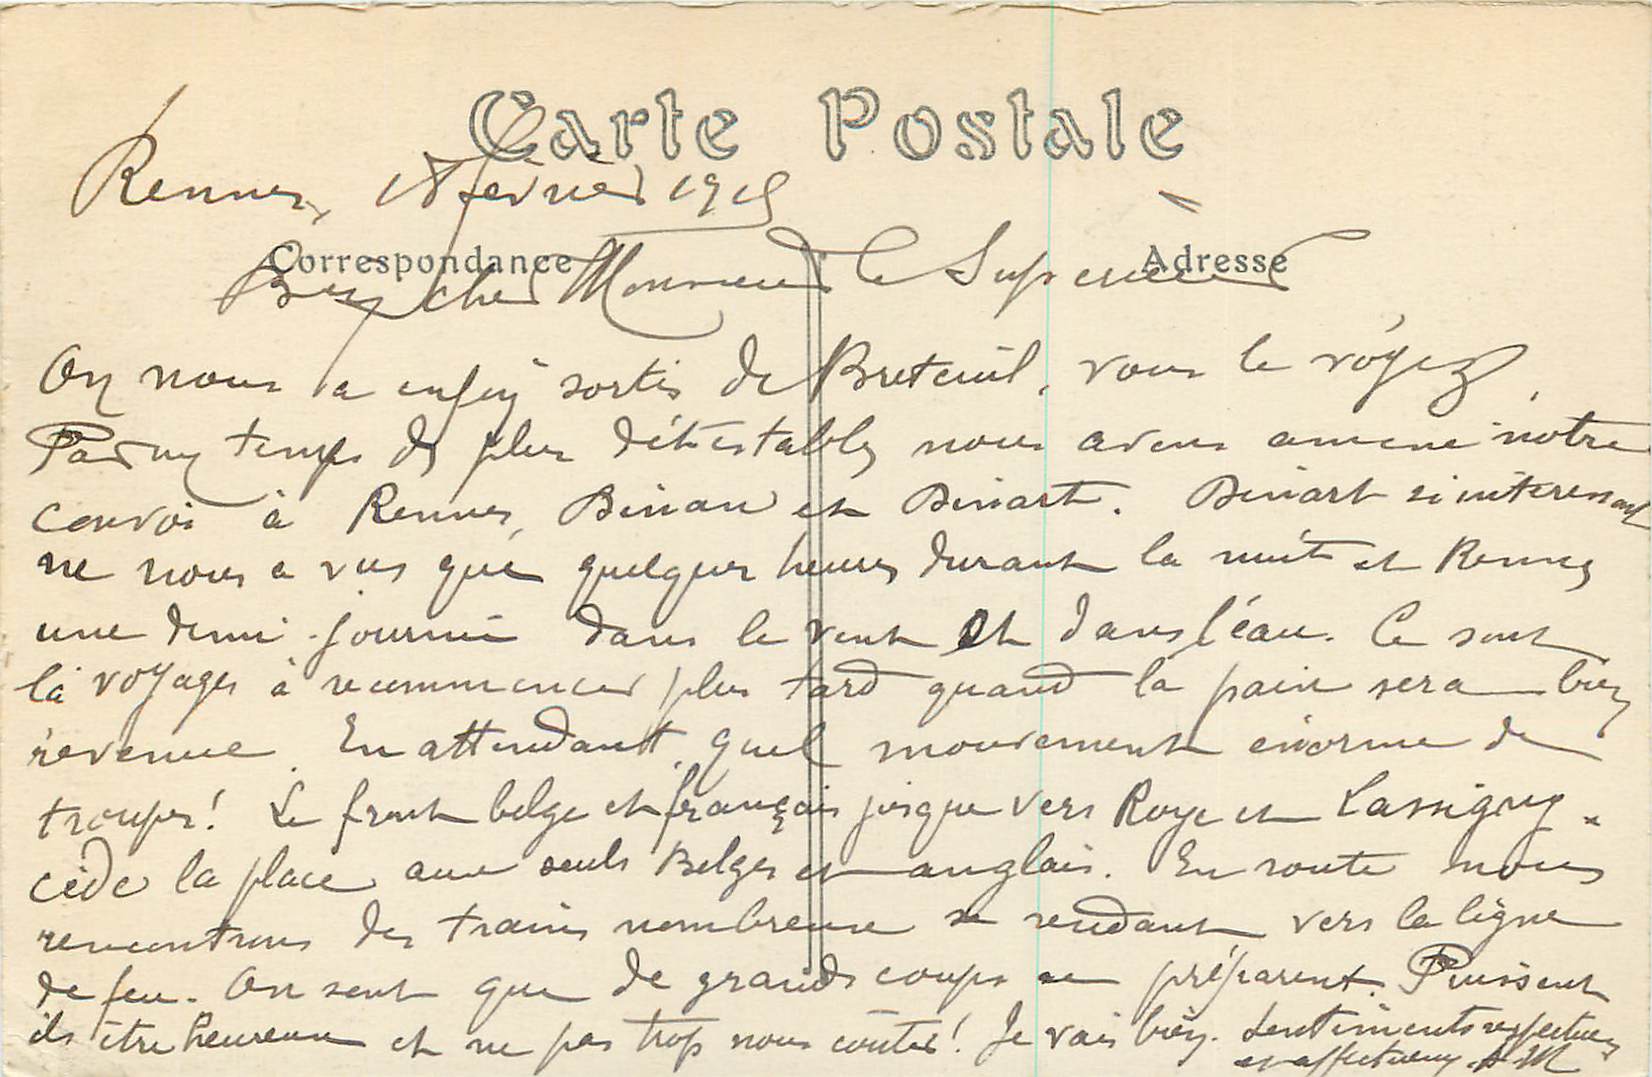 Carte Postale
Rennes, 18 février 1915
Correspondance
Adresse
Bien cher Monsieur le Supérieur
On nous a enfin sortis de Breteuil, vous le voyez.
Par un temps des plus détestables nous avons amené notre
convoi à Rennes, Dinan et Dinart. Dinart si intéressant
ne nous a vus que quelques heures durant la nuit et Rennes
une demi-journée dans le vent et dans l'eau. Ce sont
là voyages à recommencer plus tard quand la paix sera bien
revenue. En attendant, quel mouvement énorme de
troupes! Le front belge et français jusque vers Roye et Lassigny
cède la place aux seuls Belges et anglais. En route nous
rencontrons des trains nombreux se rendant vers la ligne
de feu. On sent que de grands coups se préparent. Puissent
ils être heureux et ne pas trop nous coûter! Je vais bien. Sentiments respectueux
et affectueux. A M